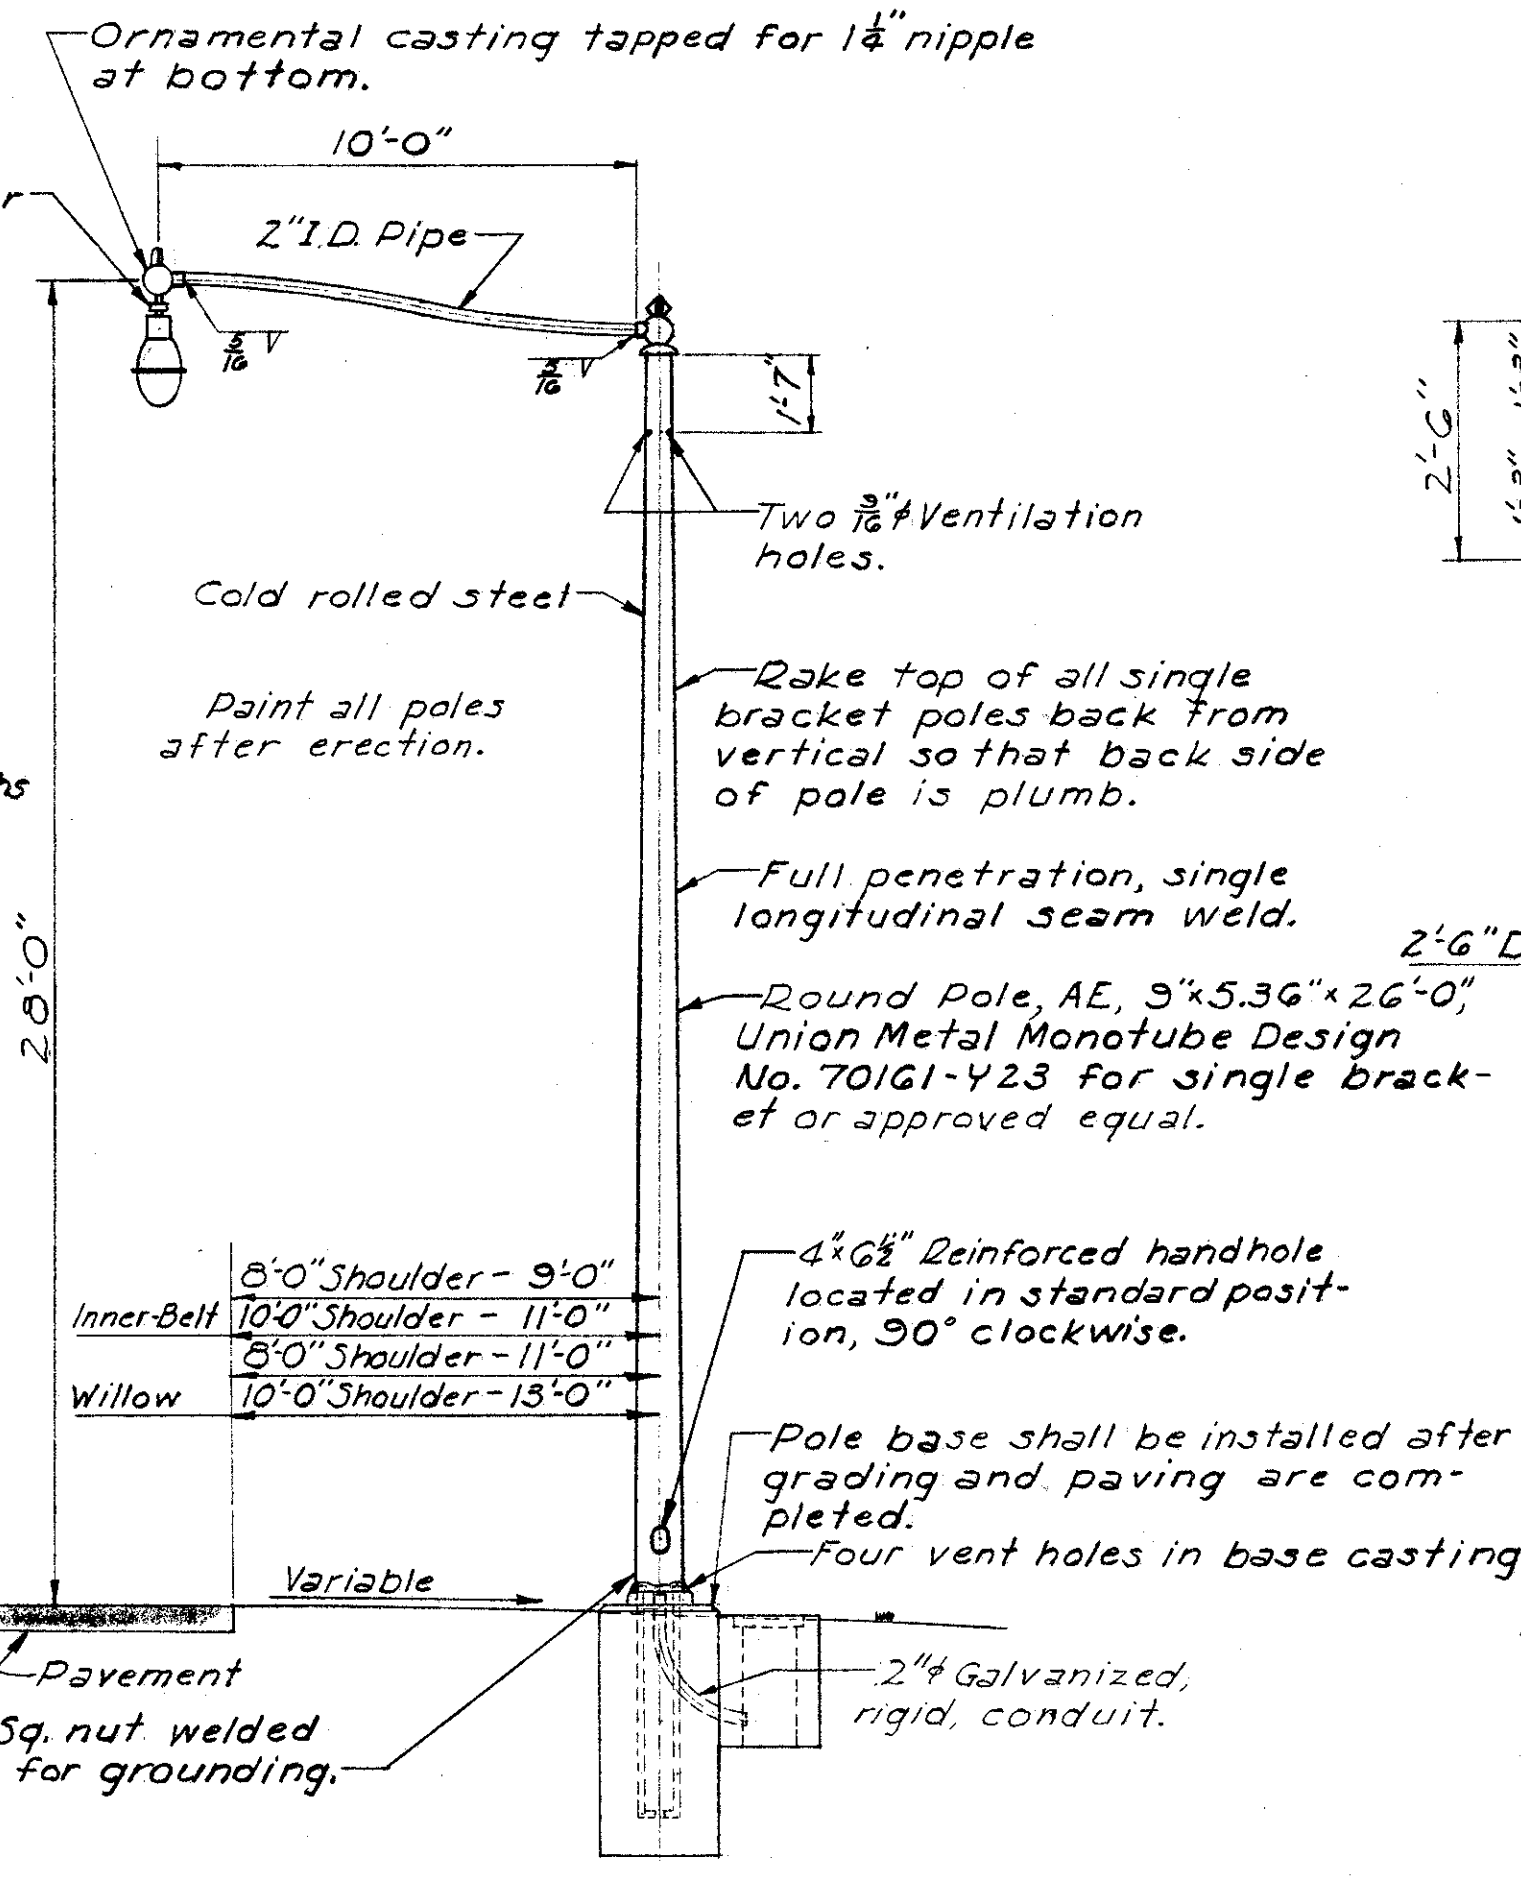 Ornamental casting tapped for 1 1/4" nipple
at bottom.
10'-0"
r
2" I.D. Pipe
5/16
5/16
1'-7"
2'-6"
1'-3" 1'-3"
Two 9/16" ϕ Ventilation
holes.
Cold rolled steel
Paint all poles
after erection.
Rake top of all single
bracket poles back from
vertical so that back side
of pole is plumb.
Full penetration, single
longitudinal seam weld.
28'-0"
2'-6" D
Round Pole, AE, 9"x5.36"x26'-0",
Union Metal Monotube Design
No. 70161-Y23 for single brack-
et or approved equal.
4"x6 1/2" Reinforced handhole
located in standard posit-
ion, 90° clockwise.
8'-0" Shoulder - 9'-0"
Inner-Belt 10'-0" Shoulder - 11'-0"
8'-0" Shoulder - 11'-0"
Willow 10'-0" Shoulder - 13'-0"
Pole base shall be installed after
grading and paving are com-
pleted.
Four vent holes in base casting
Variable
Pavement
Sq. nut welded
for grounding.
2" ϕ Galvanized,
rigid, conduit.